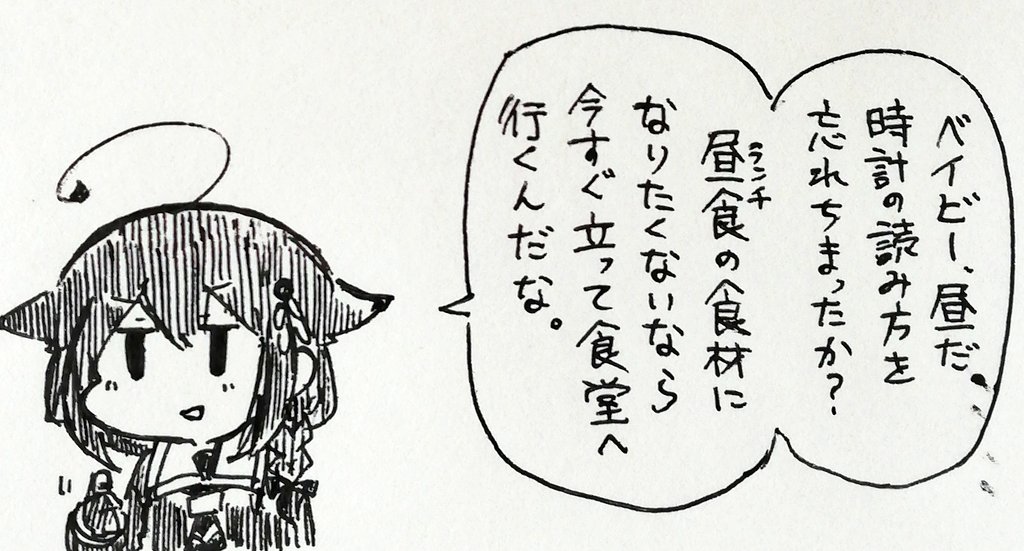 ベイビー、昼だ。
時計の読み方を
忘れちまったか？
昼食の食材に
ランチ
なりたくないなら
今すぐ立って食堂へ
行くんだな。